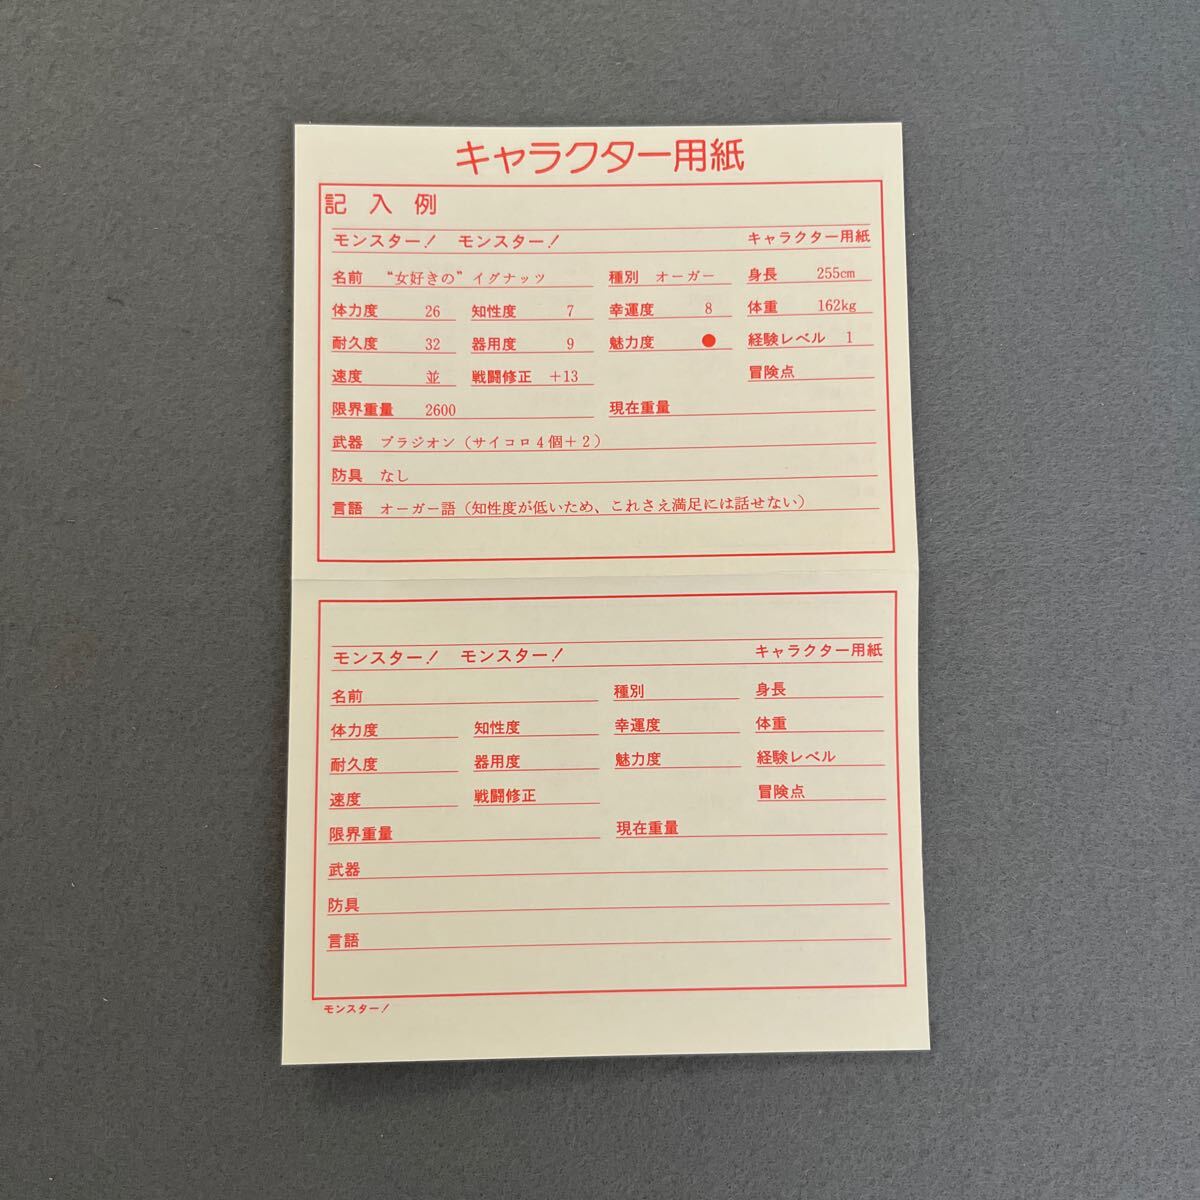 キャラクター用紙
記入例
モンスター! モンスター! キャラクター用紙
名前 “女好きの”イグナッツ 種別 オーガー 身長 255cm
体力度 26 知性度 7 幸運度 8 体重 162kg
耐久度 32 器用度 9 魅力度 ● 経験レベル 1
速度 並 戦闘修正 +13 冒険点
限界重量 2600 現在重量
武器 ブラジオン(サイコロ4個+2)
防具 なし
言語 オーガー語(知性度が低いため、これさえ満足には話せない)
モンスター! モンスター! キャラクター用紙
名前 種別 身長
体力度 知性度 幸運度 体重
耐久度 器用度 魅力度 経験レベル
速度 戦闘修正 冒険点
限界重量 現在重量
武器
防具
言語
モンスター!